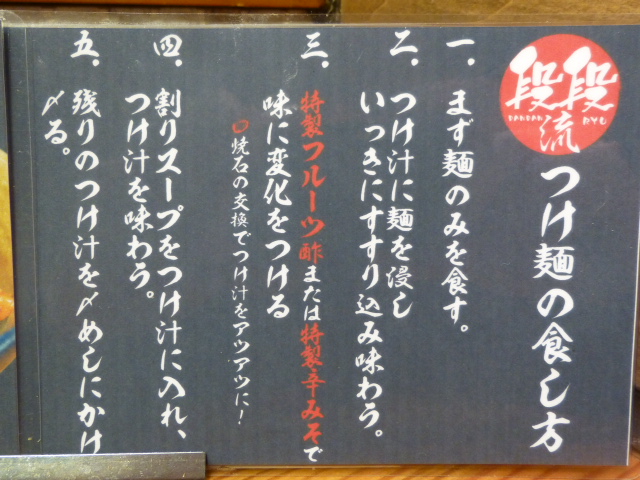 段段流
DANDAN RYU
つけ麺の食し方
一、まず麺のみを食す。
二、つけ汁に麺を浸し
いっきにすすり込み味わう。
三、特製フルーツ酢または特製辛みそで
味に変化をつける
○焼石の交換でつけ汁をアツアツに!
四、割りスープをつけ汁に入れ、
つけ汁を味わう。
五、残りのつけ汁を〆めしにかけ
〆る。